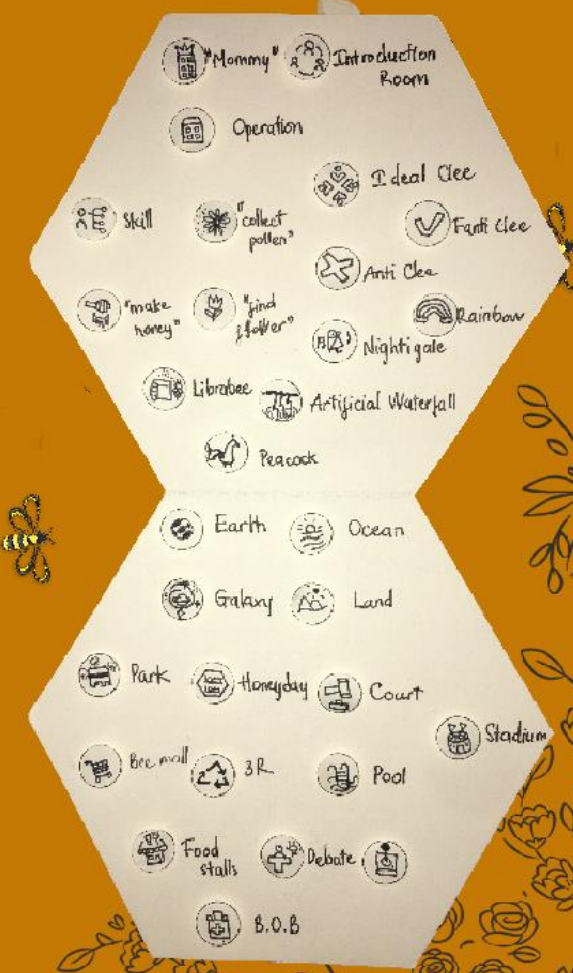 "Mommy"
Introduction
Room
Operation
Ideal Clee
Skill
"collect
pollen"
Fanti Clee
Anti Clee
"make
honey"
"find
flower"
Rainbow
Nightigale
Librabee
Artificial Waterfall
Peacock
Earth
Ocean
Galaxy
Land
Park
Honeyday
Court
Stadium
Bee mall
3R
Pool
Food
stalls
Debate
B.O.B